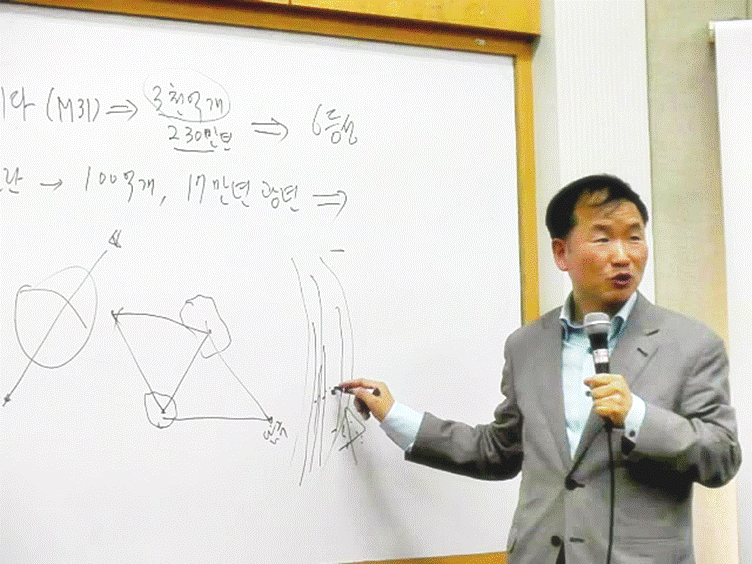 다 (M31) ⇒ 3천억개 ⇒ 6등성
230만년
란 → 100억개, 17만년 광년 ⇒